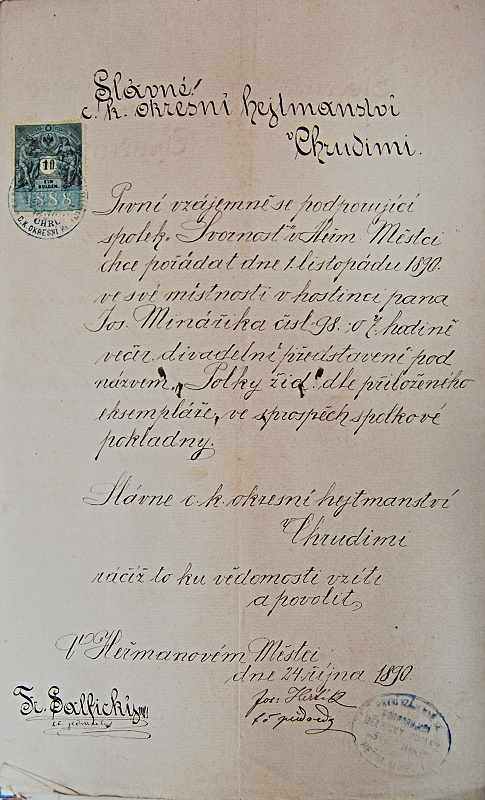 Slavné
c. k. okresní hejtmanství
v Chrudimi.
1 fl
EIN GULDEN
1888
C.K. OKRESNÍ
První vzájemně se podporující
spolek „Svornost“ v Heřm. Městci
chce pořádat dne 1. listopádu 1890.
ve své místnosti v hostinci pana
Jos. Minářika čísl. 98. o 7. hodině
večir divadelní představení pod
názvem „Polky žid“ dle přiloženého
eksempláře, ve prospěch spolkové
pokladny.
Slávne c. k. okresní hejtmanství
v Chrudimi
ráčíž to ku vědomosti vzíti
a povolit,
V Heřmanovém Městci
dne 24 října 1890.
Jos.